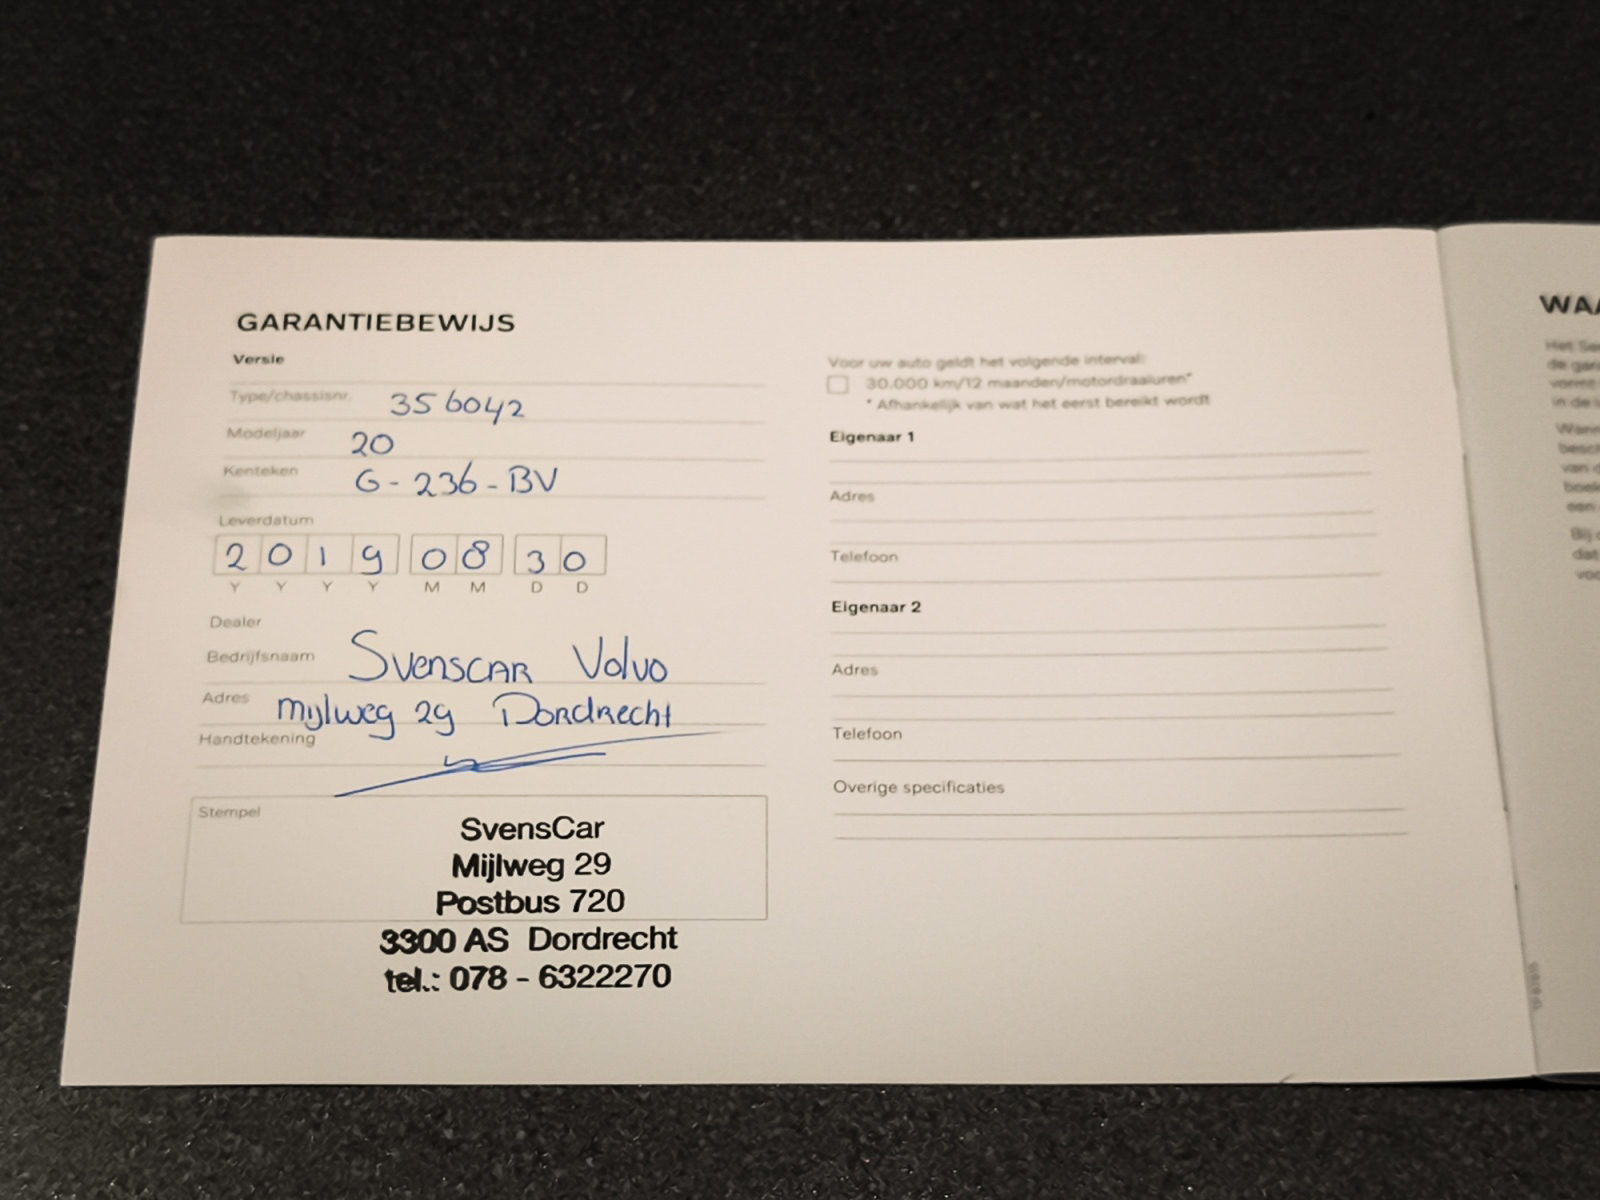 GARANTIEBEWIJS
Versie
Type/chassisnr. 356042
Modeljaar 20
Kenteken G-236-BV
Leverdatum
2019 08 30
Y Y Y Y M M D D
Dealer
Bedrijfsnaam Svenscar Volvo
Adres mijlweg 29 Dordrecht
Handtekening
Stempel
SvensCar
Mijlweg 29
Postbus 720
3300 AS Dordrecht
tel.: 078 - 6322270
Voor uw auto geldt het volgende interval:
30.000 km/12 maanden/motordraaiuren*
* Afhankelijk van wat het eerst bereikt wordt
Eigenaar 1
Adres
Telefoon
Eigenaar 2
Adres
Telefoon
Overige specificaties
WAA
Het Se
de gar
vormt
in de
besc
van d
boek
een
Bij
dat
voo